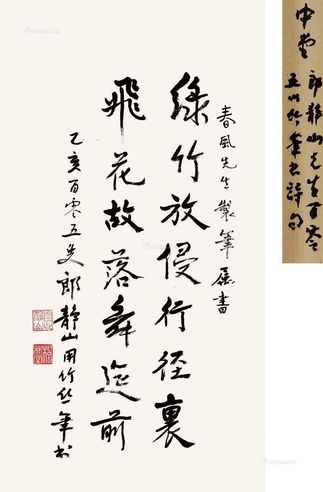 中堂
郎靜山先生百零
五以竹筆书詩句
春風先生製筆屬書
綠竹放侵行徑裏
飛花故落舞筵前
乙亥百零五叟郎靜山用竹丝筆书